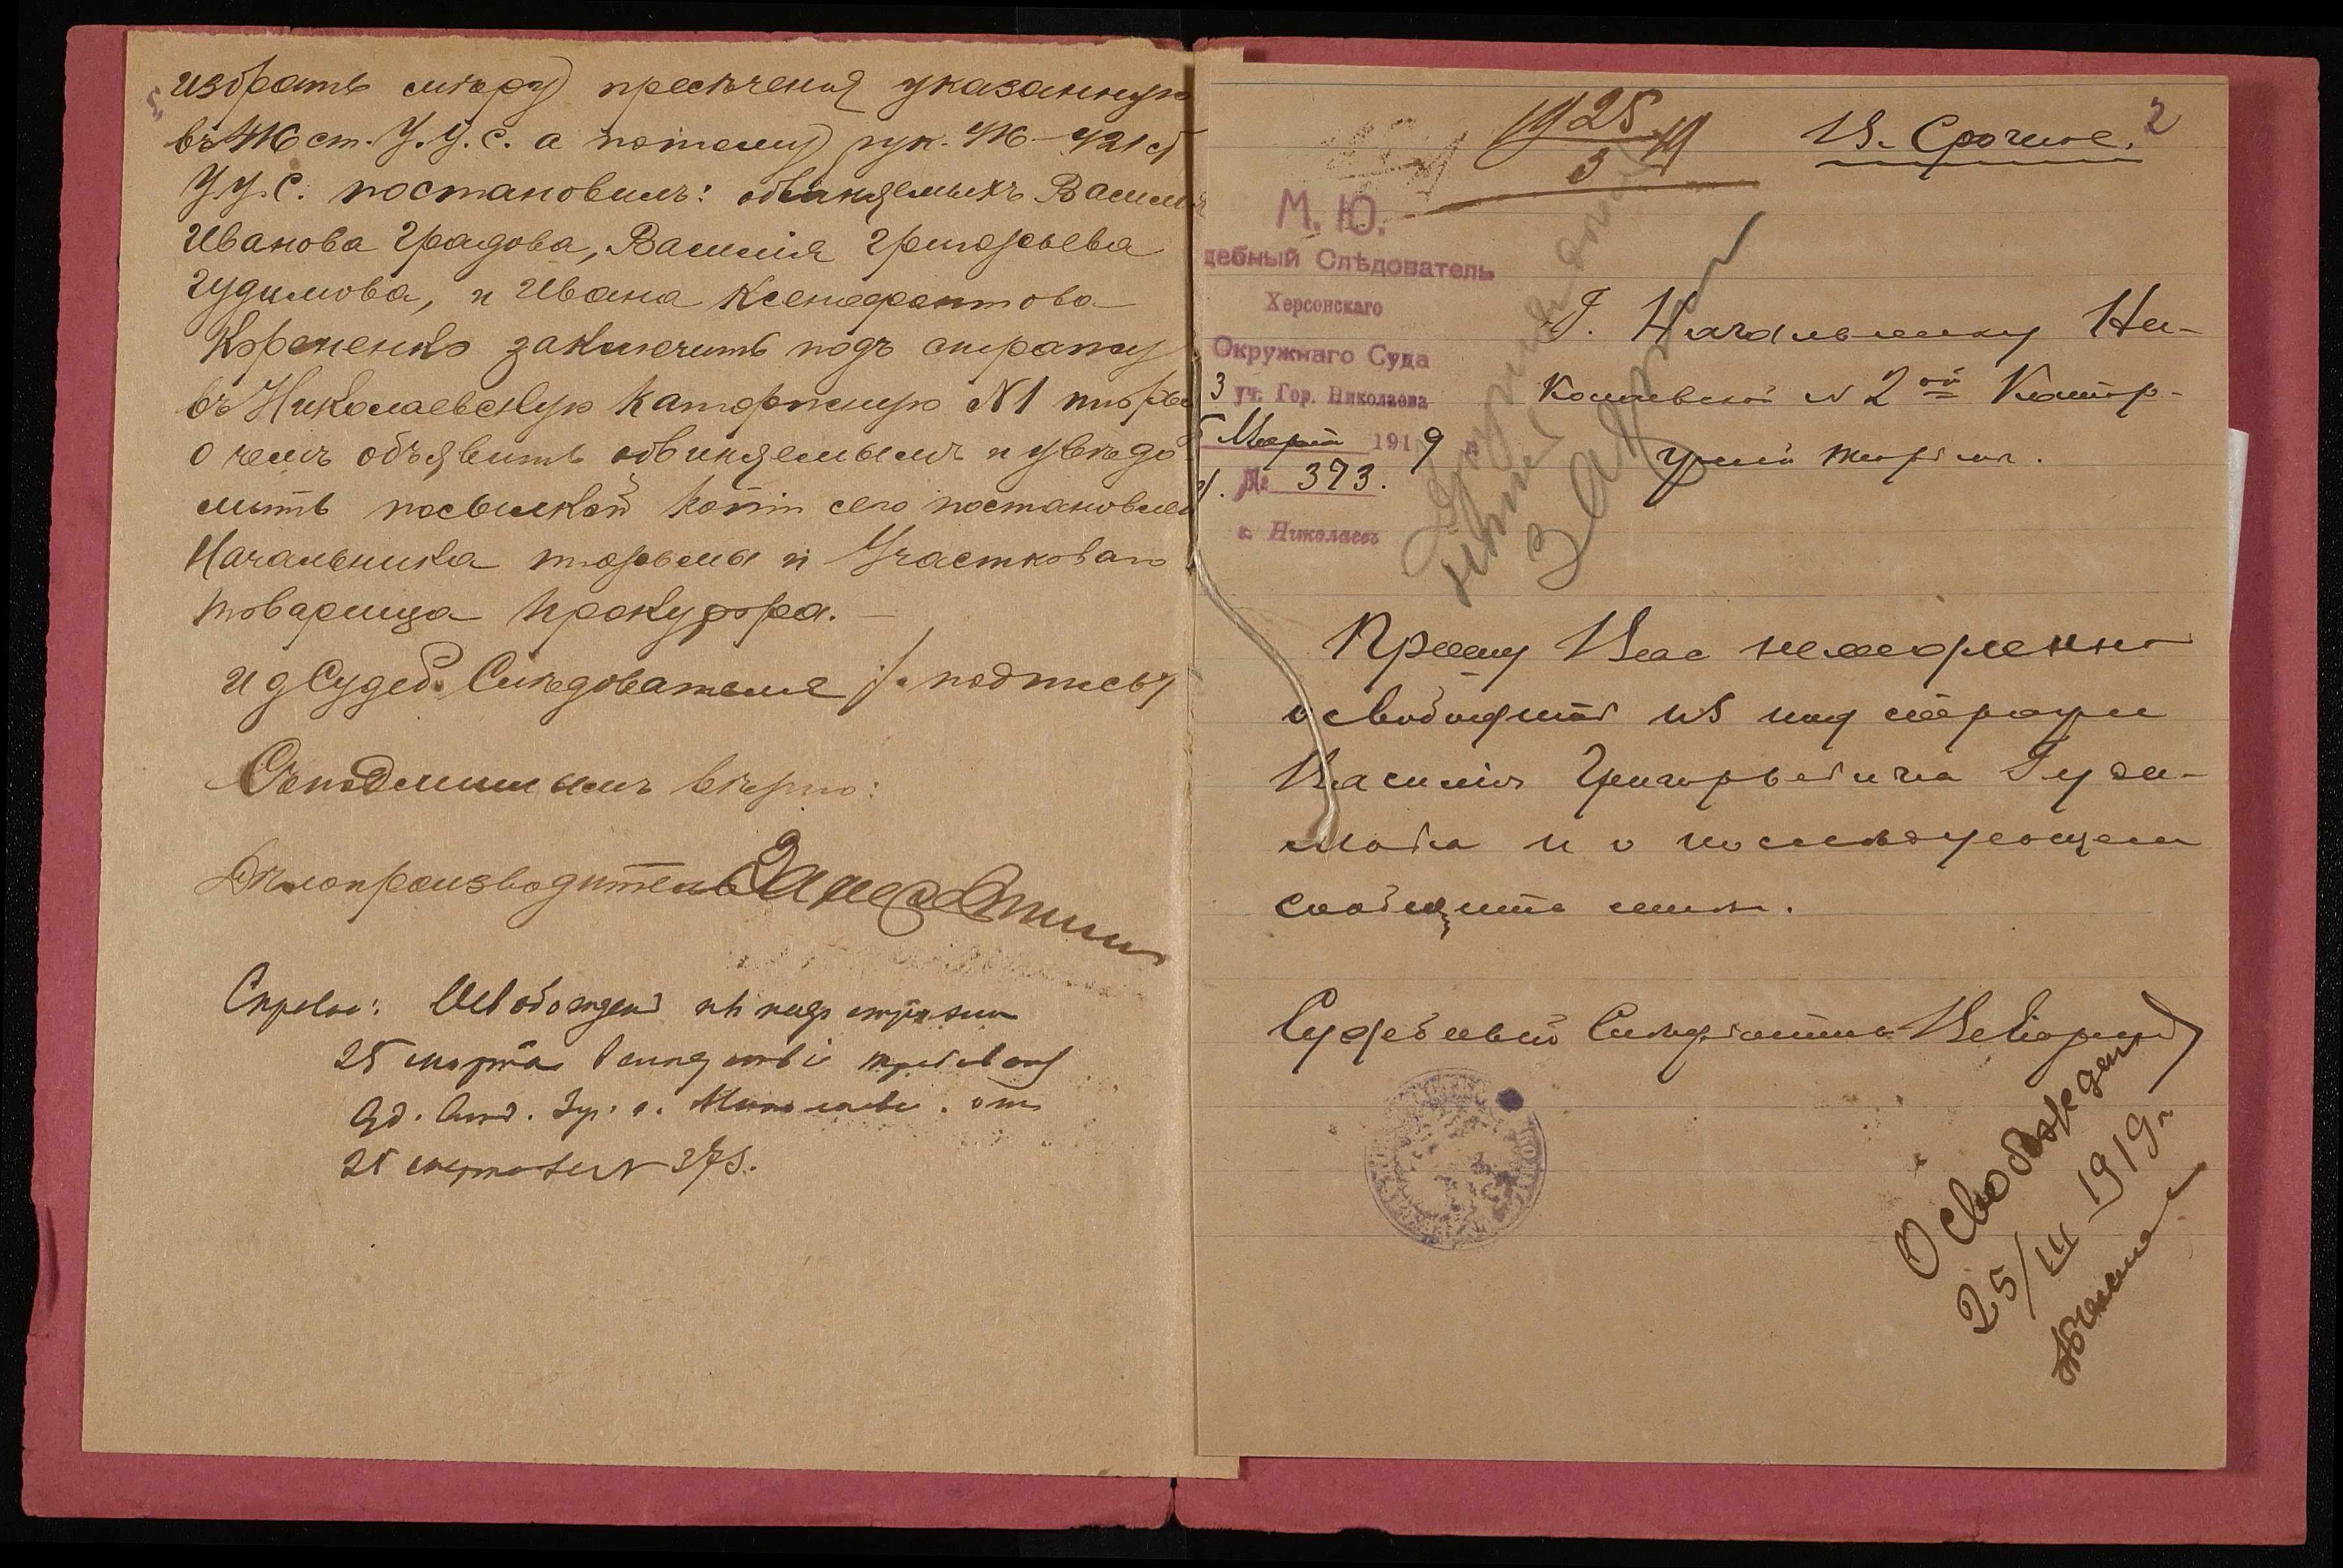 избрать мѣру пресѣченія указанную
въ 416 ст. У.У.С. а потому рук. 416-421 ст
У.У.С. постановилъ: обвиняемыхъ Василія
Иванова Градова, Василія Григорьева
Гудимова, и Ивана Ксенофонтова
Корененко заключить подъ стражу
въ Николаевскую каторжную №1 тюрьму
о чемъ объявить обвиняемымъ и увѣдо
мить посылкой копіи сего постановлен
Начальника тюрьмы и Участковаго
товарища прокурора. —
И д Судеб. Слѣдователя /. подпись/
Съ подлиннымъ вѣрно:
Дѣлопроизводитель
Справка: Освобожденъ изъ подъ стражи
25 марта вслѣдствіе требован
Суд. Слѣд. 3 уч. г. Николаева. отъ
25 марта за № 373.
2
25
3 19
В. Срочное.
М. Ю.
дебный Слѣдователь
Херсонскаго
Окружнаго Суда
3 уч. Гор. Николаева
5 Марта 1919 г.
№ 373.
г. Николаевъ
Г. Начальнику Ни-
колаевской № 2ой Катор-
жной тюрьмы.
Прошу Вас немедленно
освободить из под стражи
Василія Григорьевича Гуди-
мова и о послѣдующем
сообщить мнѣ.
Судебный Слѣдователь
Освобожден
25/III 1919 г.